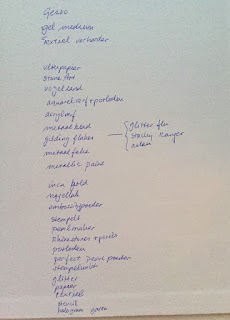 Gesso
gel medium
textiel verharder
vliespapier
stone Art
vogelzand
aquarelverf + potloden
acrylverf
metaalblad
gilding flakes
metaalfolie
metallic paint
glitter flu
Stacey Ranger
inca gold
nagellak
embossingpoeder
stempels
pearlmaker
Rhinestones + parels
potloden
perfect pearl poeder
stempelinkt
glitter
papier
stencil
hologram